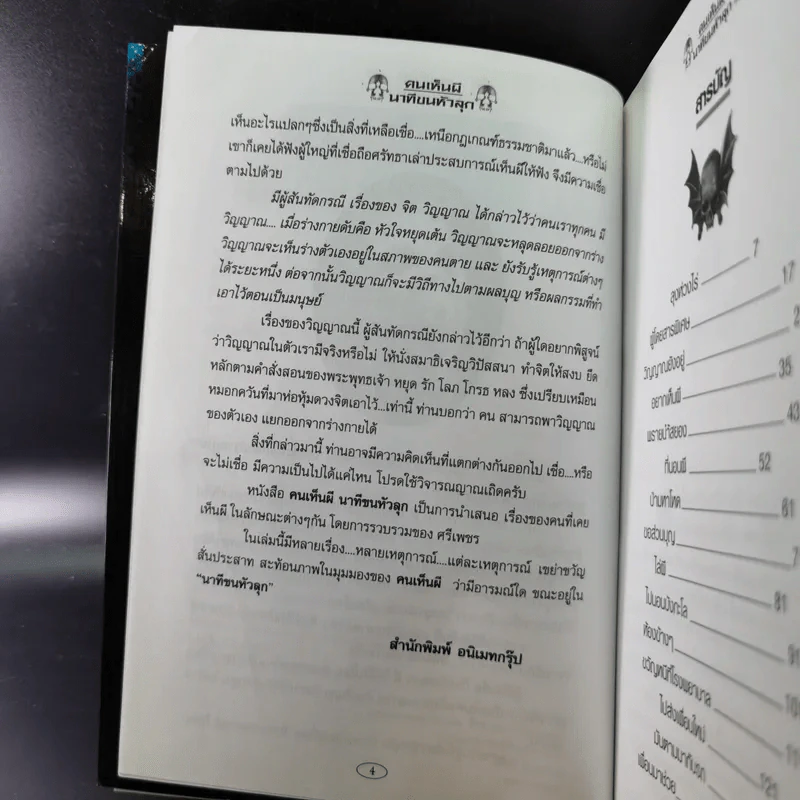 คนเห็นผี
นาทีขนหัวลุก
เห็นอะไรแปลกๆซึ่งเป็นสิ่งที่เหลือเชื่อ....เหนือกฎเกณฑ์ธรรมชาติมาแล้ว...หรือไม่
เขาก็เคยได้ฟังผู้ใหญ่ที่เชื่อถือศรัทธาเล่าประสบการณ์เห็นผีให้ฟัง จึงมีความเชื่อ
ตามไปด้วย
มีผู้สันทัดกรณี เรื่องของ จิต วิญญาณ ได้กล่าวไว้ว่าคนเราทุกคน มี
วิญญาณ.... เมื่อร่างกายดับคือ หัวใจหยุดเต้น วิญญาณจะหลุดลอยออกจากร่าง
วิญญาณจะเห็นร่างตัวเองอยู่ในสภาพของคนตาย และ ยังรับรู้เหตุการณ์ต่างๆ
ได้ระยะหนึ่ง ต่อจากนั้นวิญญาณก็จะมีวิถีทางไปตามผลบุญ หรือผลกรรมที่ทำ
เอาไว้ตอนเป็นมนุษย์
เรื่องของวิญญาณนี้ ผู้สันทัดกรณียังกล่าวไว้อีกว่า ถ้าผู้ใดอยากพิสูจน์
ว่าวิญญาณในตัวเรามีจริงหรือไม่ ให้นั่งสมาธิเจริญวิปัสสนา ทำจิตให้สงบ ยึด
หลักตามคำสั่งสอนของพระพุทธเจ้า หยุด รัก โลภ โกรธ หลง ซึ่งเปรียบเหมือน
หมอกควันที่มาห่อหุ้มดวงจิตเอาไว้...เท่านี้ ท่านบอกว่า คน สามารถพาวิญญาณ
ของตัวเอง แยกออกจากร่างกายได้
สิ่งที่กล่าวมานี้ ท่านอาจมีความคิดเห็นที่แตกต่างกันออกไป เชื่อ....หรือ
จะไม่เชื่อ มีความเป็นไปได้แค่ไหน โปรดใช้วิจารณญาณเถิดครับ
หนังสือ คนเห็นผี นาทีขนหัวลุก เป็นการนำเสนอ เรื่องของคนที่เคย
เห็นผี ในลักษณะต่างๆกัน โดยการรวบรวมของ ศรีเพชร
ในเล่มนี้มีหลายเรื่อง....หลายเหตุการณ์....แต่ละเหตุการณ์ เขย่าขวัญ
สั่นประสาท สะท้อนภาพในมุมมองของ คนเห็นผี ว่ามีอารมณ์ใด ขณะอยู่ใน
"นาทีขนหัวลุก"
สำนักพิมพ์ อนิเมทกรุ๊ป
4
คนเห็นผี
นาทีขนหัวลุก
สารบัญ
ลุงห่วงไร่ 7
ผู้โดยสารพิเศษ 17
วิญญาณยังอยู่ 2
อยากเห็นผี 35
พรายน้ำสยอง 43
ที่นอนผี 52
บ้านทาโกด 61
ขอส่วนบุญ 7
ไล่ผี 81
ไปนอนบังกะโล 91
ห้องข้างๆ 10
ขวัญหนีที่โรงพยาบาล 11
ไปส่งเพื่อนใหม่
มันตามมากับรถ 121
เพื่อนมาช่วย